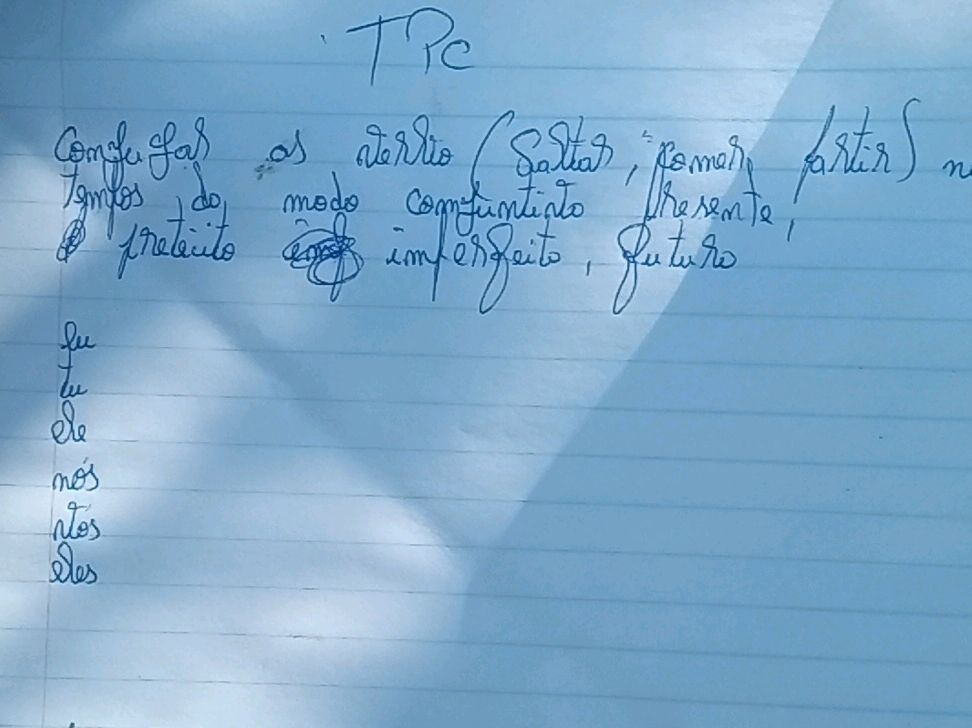 TPC
Conjugar os verbo (Saltar, comer, partir) n
tempos do modo conjuntivo presente,
pretécito imperfeito, futuro
Eu
tu
ele
nós
vós
eles